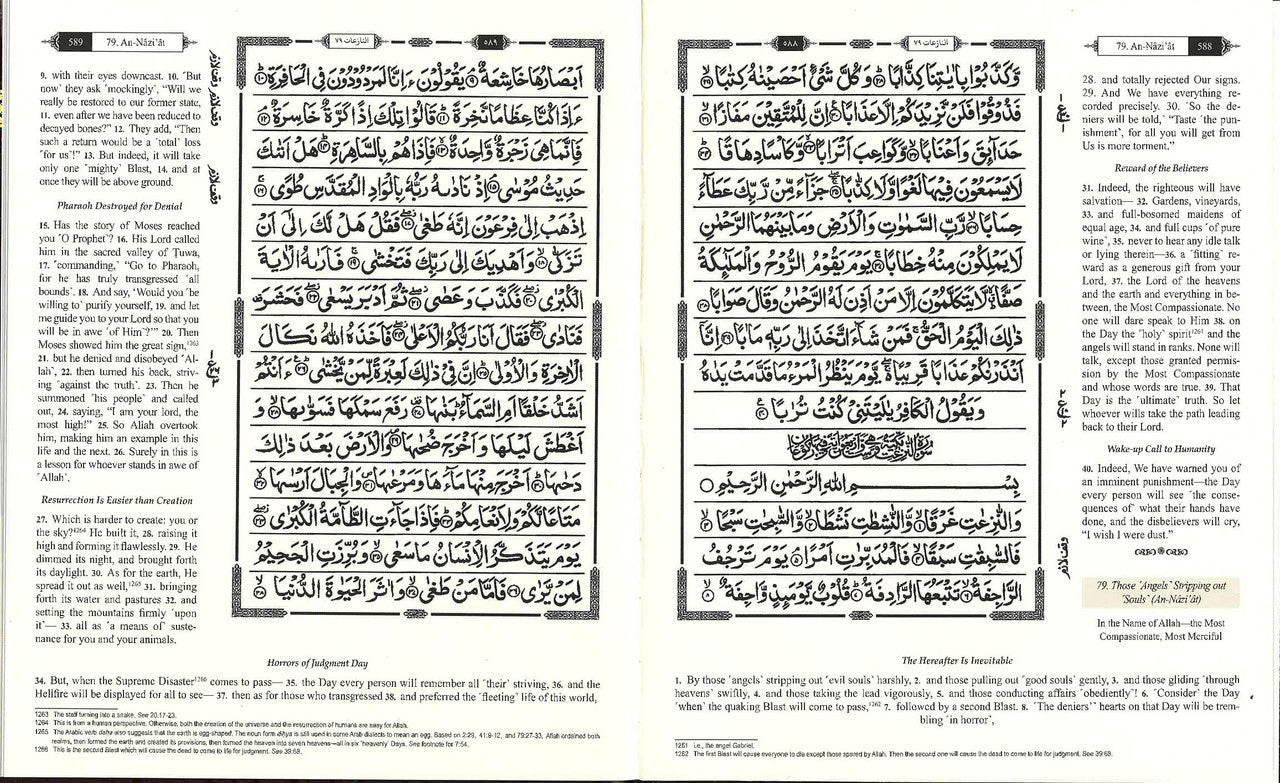 79. An-Nâzi'ât 588
النازعات ٧٩
٥٨٨
وَّكَذَّبُوا بِاٰيٰتِنَا كِذَّابًا ۙ﴿٢٨﴾ وَكُلَّ شَيْءٍ اَحْصَيْنٰهُ كِتٰبًا ۙ﴿٢٩﴾
فَذُوْقُوْا فَلَنْ نَّزِيْدَكُمْ اِلَّا عَذَابًا ﴿٣٠﴾ اِنَّ لِلْمُتَّقِيْنَ مَفَازًا ۙ﴿٣١﴾
حَدَآئِقَ وَاَعْنَابًا ۙ﴿٣٢﴾ وَّكَوَاعِبَ اَتْرَابًا ۙ﴿٣٣﴾ وَّكَاْسًا دِهَاقًا ؕ﴿٣٤﴾
لَا يَسْمَعُوْنَ فِيْهَا لَغْوًا وَّلَا كِذّٰبًا ۚ﴿٣٥﴾ جَزَآءً مِّنْ رَّبِّكَ عَطَآءً
حِسَابًا ۙ﴿٣٦﴾ رَّبِّ السَّمٰوٰتِ وَالْاَرْضِ وَمَا بَيْنَهُمَا الرَّحْمٰنِ
لَا يَمْلِكُوْنَ مِنْهُ خِطَابًا ۚ﴿٣٧﴾ يَوْمَ يَقُوْمُ الرُّوْحُ وَالْمَلٰٓئِكَةُ
صَفًّا ۙۗؕ لَّا يَتَكَلَّمُوْنَ اِلَّا مَنْ اَذِنَ لَهُ الرَّحْمٰنُ وَقَالَ صَوَابًا ﴿٣٨﴾
ذٰلِكَ الْيَوْمُ الْحَقُّ ۚ فَمَنْ شَآءَ اتَّخَذَ اِلٰى رَبِّهٖ مَاٰبًا ﴿٣٩﴾ اِنَّآ
اَنْذَرْنٰكُمْ عَذَابًا قَرِيْبًا ۚۖ يَّوْمَ يَنْظُرُ الْمَرْءُ مَا قَدَّمَتْ يَدٰهُ
وَيَقُوْلُ الْكٰفِرُ يٰلَيْتَنِيْ كُنْتُ تُرٰبًا ﴿٤٠﴾
بِسْمِ اللّٰهِ الرَّحْمٰنِ الرَّحِيْمِ
وَالنّٰزِعٰتِ غَرْقًا ۙ﴿١﴾ وَّالنّٰشِطٰتِ نَشْطًا ۙ﴿٢﴾ وَّالسّٰبِحٰتِ سَبْحًا ۙ﴿٣﴾
فَالسّٰبِقٰتِ سَبْقًا ۙ﴿٤﴾ فَالْمُدَبِّرٰتِ اَمْرًا ۘ﴿٥﴾ يَوْمَ تَرْجُفُ
الرَّاجِفَةُ ۙ﴿٦﴾ تَتْبَعُهَا الرَّادِفَةُ ؕ﴿٧﴾ قُلُوْبٌ يَّوْمَئِذٍ وَّاجِفَةٌ ۙ﴿٨﴾
28. and totally rejected Our signs.
29. And We have everything re-
corded precisely. 30. ˹So the de-
niers will be told,˺ “Taste ˹the pun-
ishment˺, for all you will get from
Us is more torment.”
Reward of the Believers
31. Indeed, the righteous will have
salvation— 32. Gardens, vineyards,
33. and full-bosomed maidens of
equal age, 34. and full cups ˹of pure
wine˺, 35. never to hear any idle talk
or lying therein—36. a ˹fitting˺ re-
ward as a generous gift from your
Lord, 37. the Lord of the heavens
and the earth and everything in be-
tween, the Most Compassionate. No
one will dare speak to Him 38. on
the Day the ˹holy˺ spirit1261 and the
angels will stand in ranks. None will
talk, except those granted permis-
sion by the Most Compassionate
and whose words are true. 39. That
Day is the ˹ultimate˺ truth. So let
whoever wills take the path leading
back to their Lord.
Wake-up Call to Humanity
40. Indeed, We have warned you of
an imminent punishment—the Day
every person will see ˹the conse-
quences of˺ what their hands have
done, and the disbelievers will cry,
“I wish I were dust.”
79. Those ˹Angels˺ Stripping out
˹Souls˺ (An-Nâzi'ât)
In the Name of Allah—the Most
Compassionate, Most Merciful
The Hereafter Is Inevitable
1. By those ˹angels˺ stripping out ˹evil souls˺ harshly, 2. and those pulling out ˹good souls˺ gently, 3. and those gliding ˹through
heavens˺ swiftly, 4. and those taking the lead vigorously, 5. and those conducting affairs ˹obediently˺! 6. ˹Consider˺ the Day
˹when˺ the quaking Blast will come to pass,1262 7. followed by a second Blast. 8. ˹The deniers'˺ hearts on that Day will be trem-
bling ˹in horror˺,
1261 i.e., the angel Gabriel.
1262 The first Blast will cause everyone to die except those spared by Allah. Then the second one will cause the dead to come to life for judgment. See 39:68.
589 79. An-Nâzi'ât
النازعات ٧٩
٥٨٩
اَبْصَارُهَا خَاشِعَةٌ ۘ﴿٩﴾ يَقُوْلُوْنَ ءَاِنَّا لَمَرْدُوْدُوْنَ فِى الْحَافِرَةِ ؕ﴿١٠﴾
ءَاِذَا كُنَّا عِظَامًا نَّخِرَةً ؕ﴿١١﴾ قَالُوْا تِلْكَ اِذًا كَرَّةٌ خَاسِرَةٌ ۘ﴿١٢﴾
فَاِنَّمَا هِىَ زَجْرَةٌ وَّاحِدَةٌ ۙ﴿١٣﴾ فَاِذَا هُمْ بِالسَّاهِرَةِ ؕ﴿١٤﴾ هَلْ اَتٰىكَ
حَدِيْثُ مُوْسٰى ۘ﴿١٥﴾ اِذْ نَادٰىهُ رَبُّهٗ بِالْوَادِ الْمُقَدَّسِ طُوًى ۚ﴿١٦﴾
اِذْهَبْ اِلٰى فِرْعَوْنَ اِنَّهٗ طَغٰى ۖ﴿١٧﴾ فَقُلْ هَلْ لَّكَ اِلٰٓى اَنْ
تَزَكّٰى ۙ﴿١٨﴾ وَاَهْدِيَكَ اِلٰى رَبِّكَ فَتَخْشٰى ۚ﴿١٩﴾ فَاَرٰىهُ الْاٰيَةَ
الْكُبْرٰى ۖ﴿٢٠﴾ فَكَذَّبَ وَعَصٰى ۖ﴿٢١﴾ ثُمَّ اَدْبَرَ يَسْعٰى ۖ﴿٢٢﴾ فَحَشَرَ
فَنَادٰى ۖ﴿٢٣﴾ فَقَالَ اَنَا رَبُّكُمُ الْاَعْلٰى ۖ﴿٢٤﴾ فَاَخَذَهُ اللّٰهُ نَكَالَ
الْاٰخِرَةِ وَالْاُوْلٰى ؕ﴿٢٥﴾ اِنَّ فِىْ ذٰلِكَ لَعِبْرَةً لِّمَنْ يَّخْشٰى ؕ﴿٢٦﴾ ءَاَنْتُمْ
اَشَدُّ خَلْقًا اَمِ السَّمَآءُ ؕ بَنٰىهَا ۥ﴿٢٧﴾ رَفَعَ سَمْكَهَا فَسَوّٰىهَا ۙ﴿٢٨﴾ وَ
اَغْطَشَ لَيْلَهَا وَاَخْرَجَ ضُحٰىهَا ۪﴿٢٩﴾ وَالْاَرْضَ بَعْدَ ذٰلِكَ
دَحٰىهَا ؕ﴿٣٠﴾ اَخْرَجَ مِنْهَا مَآءَهَا وَمَرْعٰىهَا ۪﴿٣١﴾ وَالْجِبَالَ اَرْسٰىهَا ۙ﴿٣٢﴾
مَتَاعًا لَّكُمْ وَلِاَنْعَامِكُمْ ؕ﴿٣٣﴾ فَاِذَا جَآءَتِ الطَّآمَّةُ الْكُبْرٰى ۖ﴿٣٤﴾
يَوْمَ يَتَذَكَّرُ الْاِنْسَانُ مَا سَعٰى ۙ﴿٣٥﴾ وَبُرِّزَتِ الْجَحِيْمُ
لِمَنْ يَّرٰى ﴿٣٦﴾ فَاَمَّا مَنْ طَغٰى ۙ﴿٣٧﴾ وَاٰثَرَ الْحَيٰوةَ الدُّنْيَا ۙ﴿٣٨﴾
9. with their eyes downcast. 10. ˹But
now˺ they ask ˹mockingly˺, “Will we
really be restored to our former state,
11. even after we have been reduced to
decayed bones?” 12. They add, “Then
such a return would be a ˹total˺ loss
˹for us˺!” 13. But indeed, it will take
only one ˹mighty˺ Blast, 14. and at
once they will be above ground.
Pharaoh Destroyed for Denial
15. Has the story of Moses reached
you ˹O Prophet˺? 16. His Lord called
him in the sacred valley of Ṭuwa,
17. ˹commanding,˺ “Go to Pharaoh,
for he has truly transgressed ˹all
bounds˺. 18. And say, ‘Would you ˹be
willing to˺ purify yourself, 19. and let
me guide you to your Lord so that you
will be in awe ˹of Him˺?’” 20. Then
Moses showed him the great sign,1263
21. but he denied and disobeyed ˹Al-
lah˺, 22. then turned his back, striv-
ing ˹against the truth˺. 23. Then he
summoned ˹his people˺ and called
out, 24. saying, “I am your lord, the
most high!” 25. So Allah overtook
him, making him an example in this
life and the next. 26. Surely in this is
a lesson for whoever stands in awe of
˹Allah˺.
Resurrection Is Easier than Creation
27. Which is harder to create: you or
the sky?1264 He built it, 28. raising it
high and forming it flawlessly. 29. He
dimmed its night, and brought forth
its daylight. 30. As for the earth, He
spread it out as well,1265 31. bringing
forth its water and pastures 32. and
setting the mountains firmly ˹upon
it˺— 33. all as ˹a means of˺ suste-
nance for you and your animals.
Horrors of Judgment Day
34. But, when the Supreme Disaster1266 comes to pass— 35. the Day every person will remember all ˹their˺ striving, 36. and the
Hellfire will be displayed for all to see— 37. then as for those who transgressed 38. and preferred the ˹fleeting˺ life of this world,
1263 The staff turning into a snake. See 20:17-23.
1264 This is from a human perspective. Otherwise, both the creation of the universe and the resurrection of humans are easy for Allah.
1265 The Arabic verb daḥa also suggests that the earth is egg-shaped. The noun form diḥya is still used in some Arab dialects to mean an egg. Based on 2:29, 41:9-12, and 79:27-33, Allah ordained both
realms, then formed the earth and created its provisions, then formed the heaven into seven heavens—all in six ˹heavenly˺ Days. See footnote for 7:54.
1266 This is the second Blast which will cause the dead to come to life for judgment. See 39:68.